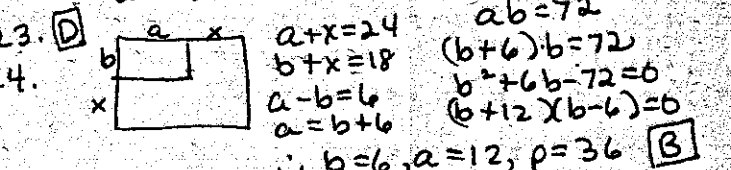 3. D
4.
a x
b
x
a+x=24
b+x=18
a-b=6
a=b+6
ab=72
(b+6)·b=72
b²+6b-72=0
(b+12)(b-6)=0
∴ b=6, a=12, p=36 B